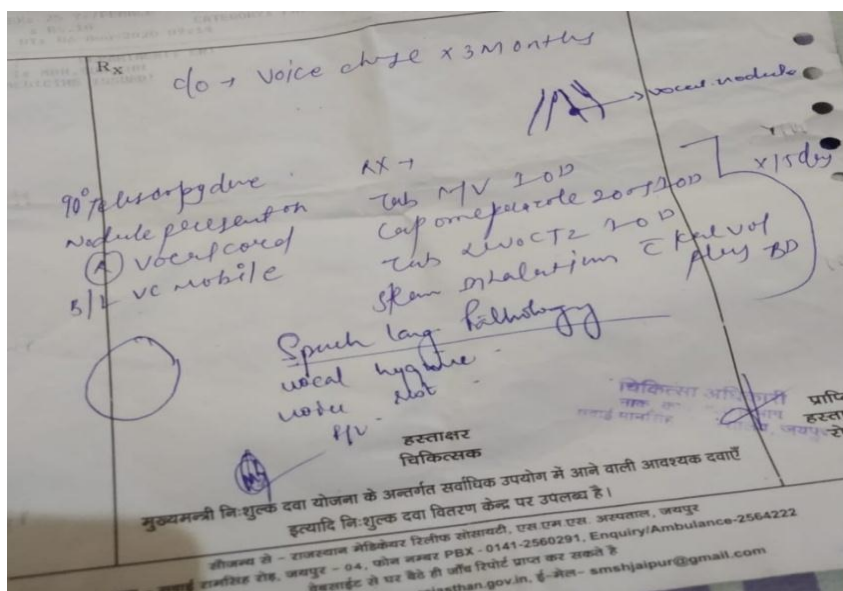 Rx
c/o → Voice change x 3 Months
→ vocal nodule
90° telescopy done
Nodule present on
(R) vocal cord
B/L VC mobile
RX →
Tab MV 1OD
Cap omeprazole 20mg 1OD
Tab LEVOCTZ 1OD
x 15 day
Steam inhalation c Kalvol
plus BD
Speech lang. Pathology
vocal hygiene
voice rest
हस्ताक्षर
चिकित्सक
चिकित्सा अधिकारी
जयपुर
मुख्यमन्त्री निःशुल्क दवा योजना के अन्तर्गत सर्वाधिक उपयोग में आने वाली आवश्यक दवाएँ
इत्यादि निःशुल्क दवा वितरण केन्द्र पर उपलब्ध है।
सौजन्य से – राजस्थान मेडिकेयर रिलीफ सोसायटी, एस.एम.एस. अस्पताल, जयपुर
सवाई रामसिंह रोड़, जयपुर – 04, फोन नम्बर PBX - 0141-2560291, Enquiry/Ambulance-2564222
वेबसाईट से घर बैठे ही जाँच रिपोर्ट प्राप्त कर सकते है
rajasthan.gov.in, ई-मेल– smshjaipur@gmail.com